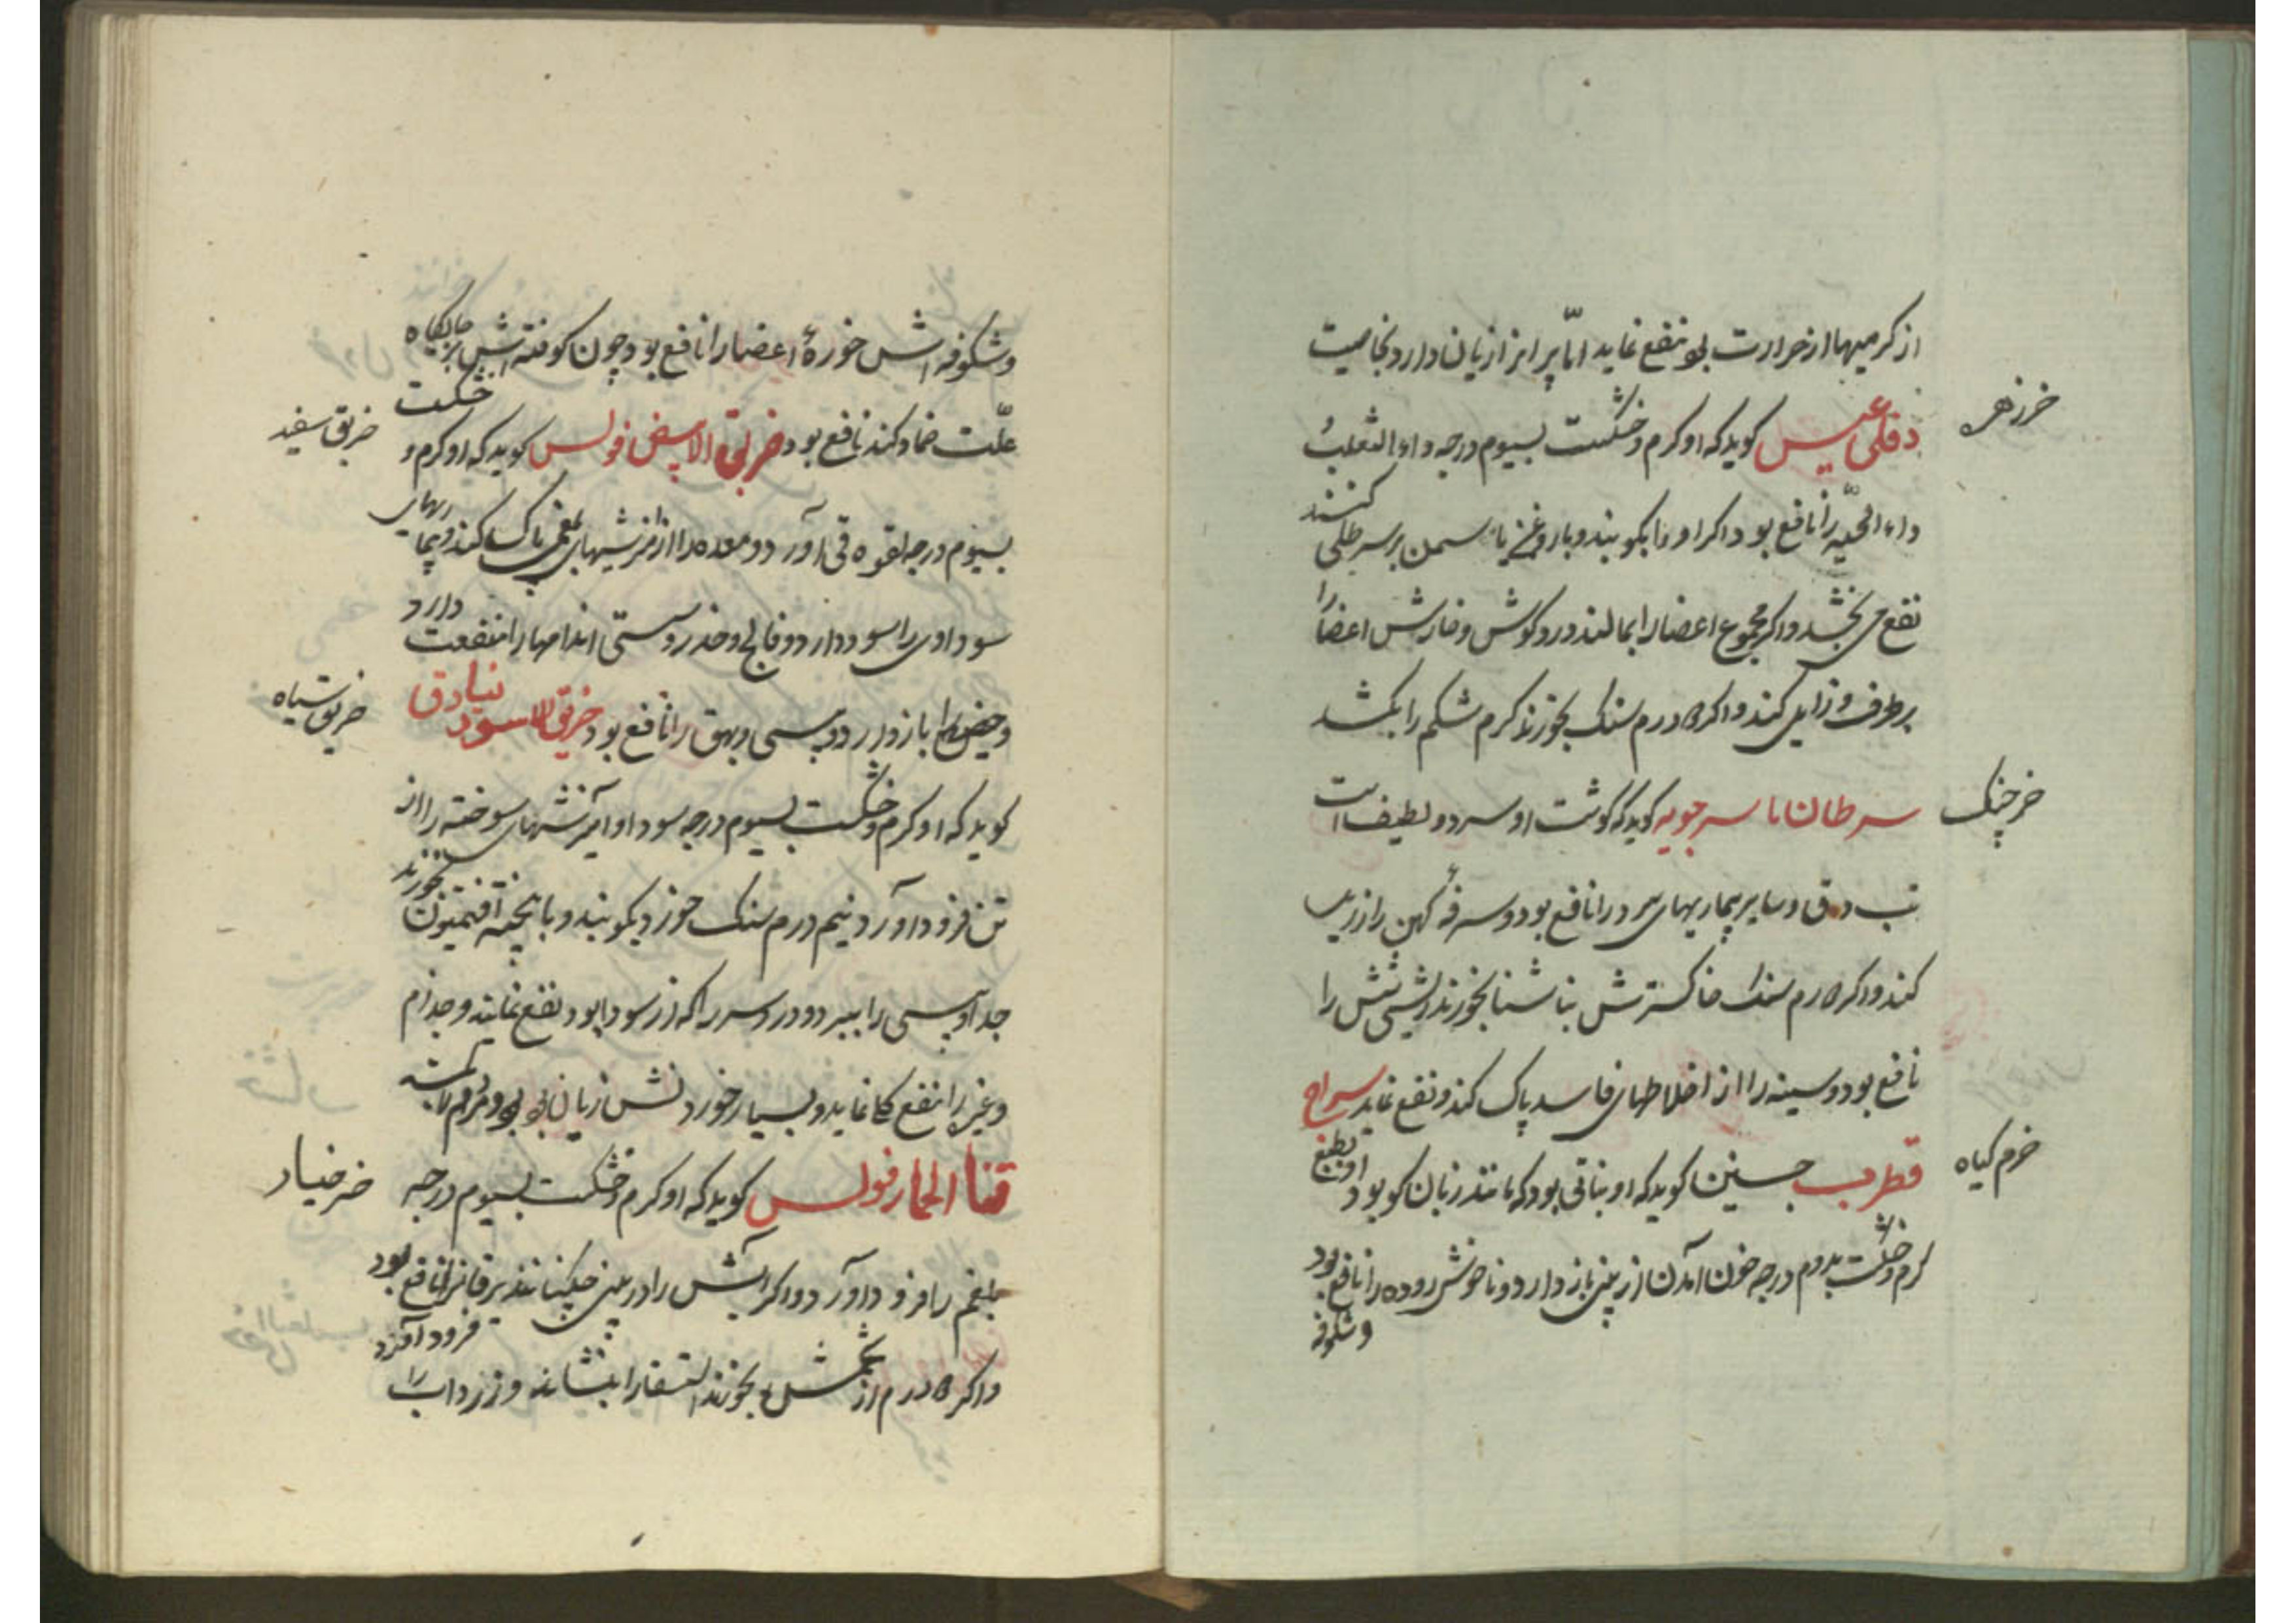 از کرمیها از حرارت بود نفع نماید امّا پیرانرا زیان دارد بخاصیت
خرزهره
دفلی عیسی کوید که او کرم و خشکست بسیوم درجه داء الثعلب و
داء الحیّه را نافع بود اکر او را بکوبند و با روغن یاسمن بر سر طلی کنند
نفع می بخشد و اکر مجموع اعضا را بمالند درد کوش و خارش اعضا را
بر طرف و زایل کند و اکر درم سنک بخورند کرم شکم را بکشد
خرچنک
سرطان ماسرجویه کوید که کوشت او سرد و لطیف است
تب دق و سایر بیماریهای سر را نافع بود و سرفهٔ کهن را
کند و اکر درم سنک خاکسترش ناشتا بخورند ریش شش را
نافع بود و سینه را از اخلاطهای فاسد پاک کند و نفع نماید سراج
خرم کیاه
قطرب حسنین کوید که او نباتی بود که مانند زبان کو بود او بطبع
کرم و خشکست بدوم درجه خون آمدن از بینی باز دارد و ناخوشی روده را نافع بود
و شکوفه
و شکوفه اش خورهٔ اعضا را نافع بود و چون کوفته اش بر جایکاه
علّت ضماد کنند نافع بود خربق الابیض فولس کوید که او کرم و خشکست
خربق سفید
بسیوم درجه لقوه قی آورد و معده را از آمیزشهای بلغمی پاک کند و بیماریهای
سوداوی را سود دارد و فالج و خدر و سستی اندامها را منفعت دارد
و حیض را باز دارد و پیسی و بهق را نافع بود خربق الاسود نیادق
خربق سیاه
کوید که او کرم و خشکست بسیوم درجه سودا و آمیزشهای سوخته را از
تن فرود آورد نیم درم سنک خورد بکوبند و با پخته افتیمون بخورند
جدا و پیسی را ببرد و درد سر را که از سودا بود نفع نماید و جذام
و غیره را نفع نماید و بسیار خوردنش زیان بود و مردم را بکشد
قثاء الحمار فولس کوید که او کرم و خشکست بسیوم درجه
خرخیار
بلغم را فرود آورد و اکر آبش را در بینی چکانند یرقانرا نافع بود
و اکر درم از تخمش بخورند استسقا را بنشاند و زرداب را فرود آورد